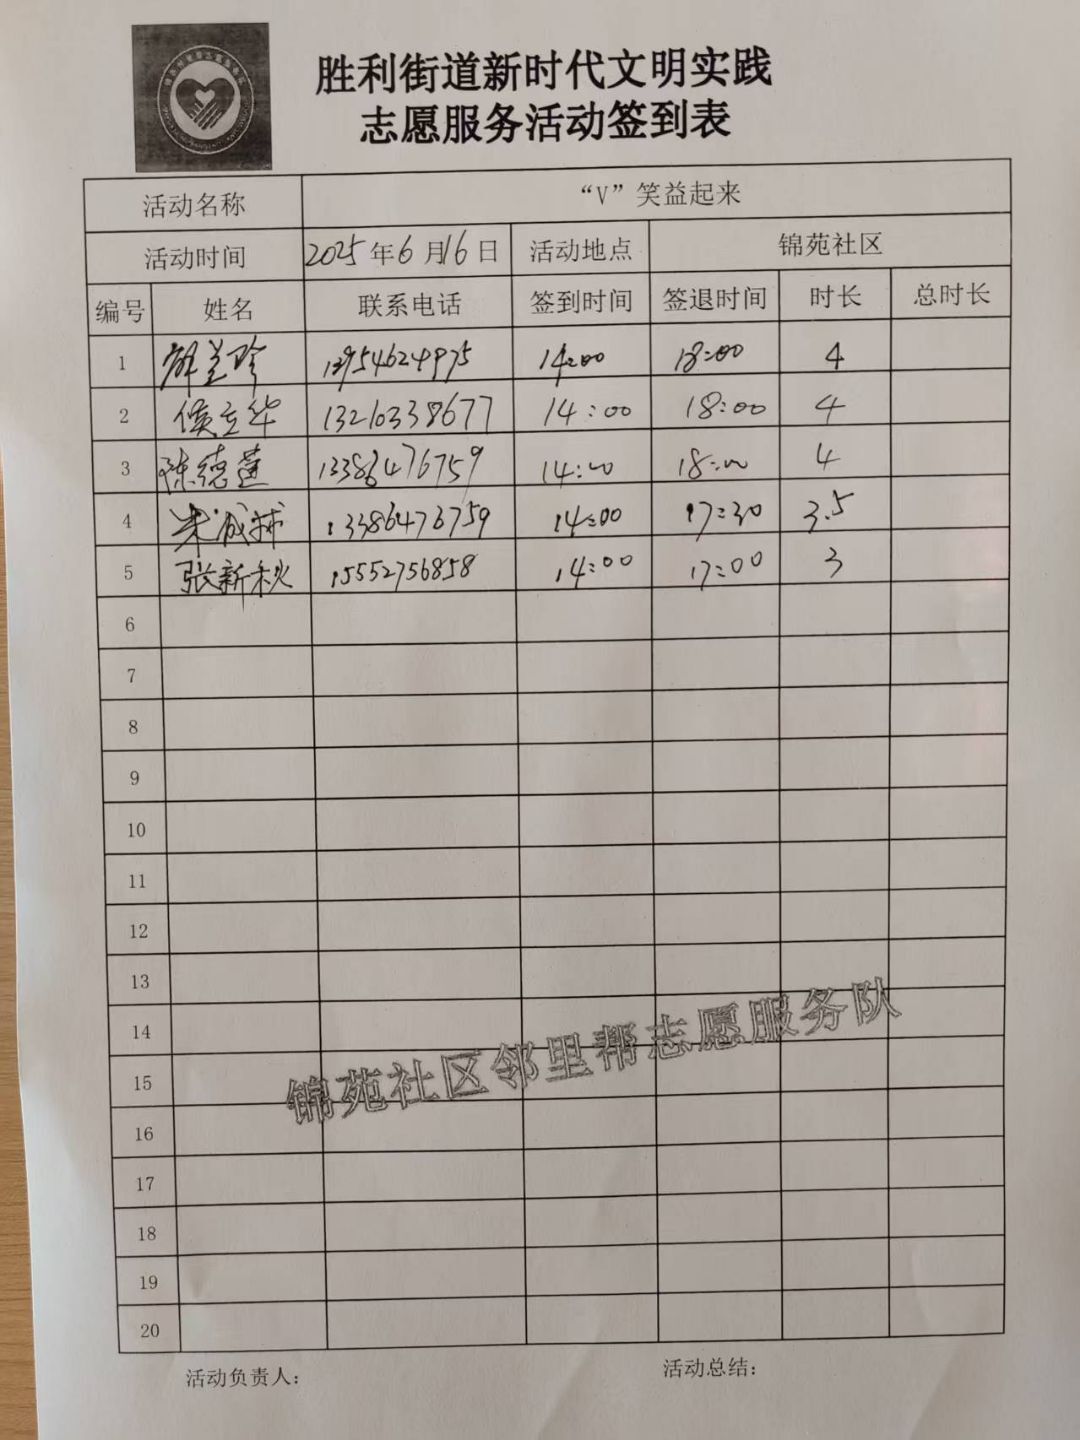 胜利街道新时代文明实践
志愿服务活动签到表
活动名称 “V”笑益起来
活动时间 2025年6月16日 活动地点 锦苑社区
编号 姓名 联系电话 签到时间 签退时间 时长 总时长
1 14:00 18:00 4
2 侯立华 13210338677 14:00 18:00 4
3 陈德莲 13386476759 14:00 18:00 4
4 朱成林 13386476759 14:00 17:30 3.5
5 张新秋 15552756858 14:00 17:00 3
6
7
8
9
10
11
12
13
14
15
16
17
18
19
20
锦苑社区邻里帮志愿服务队
活动负责人： 活动总结：